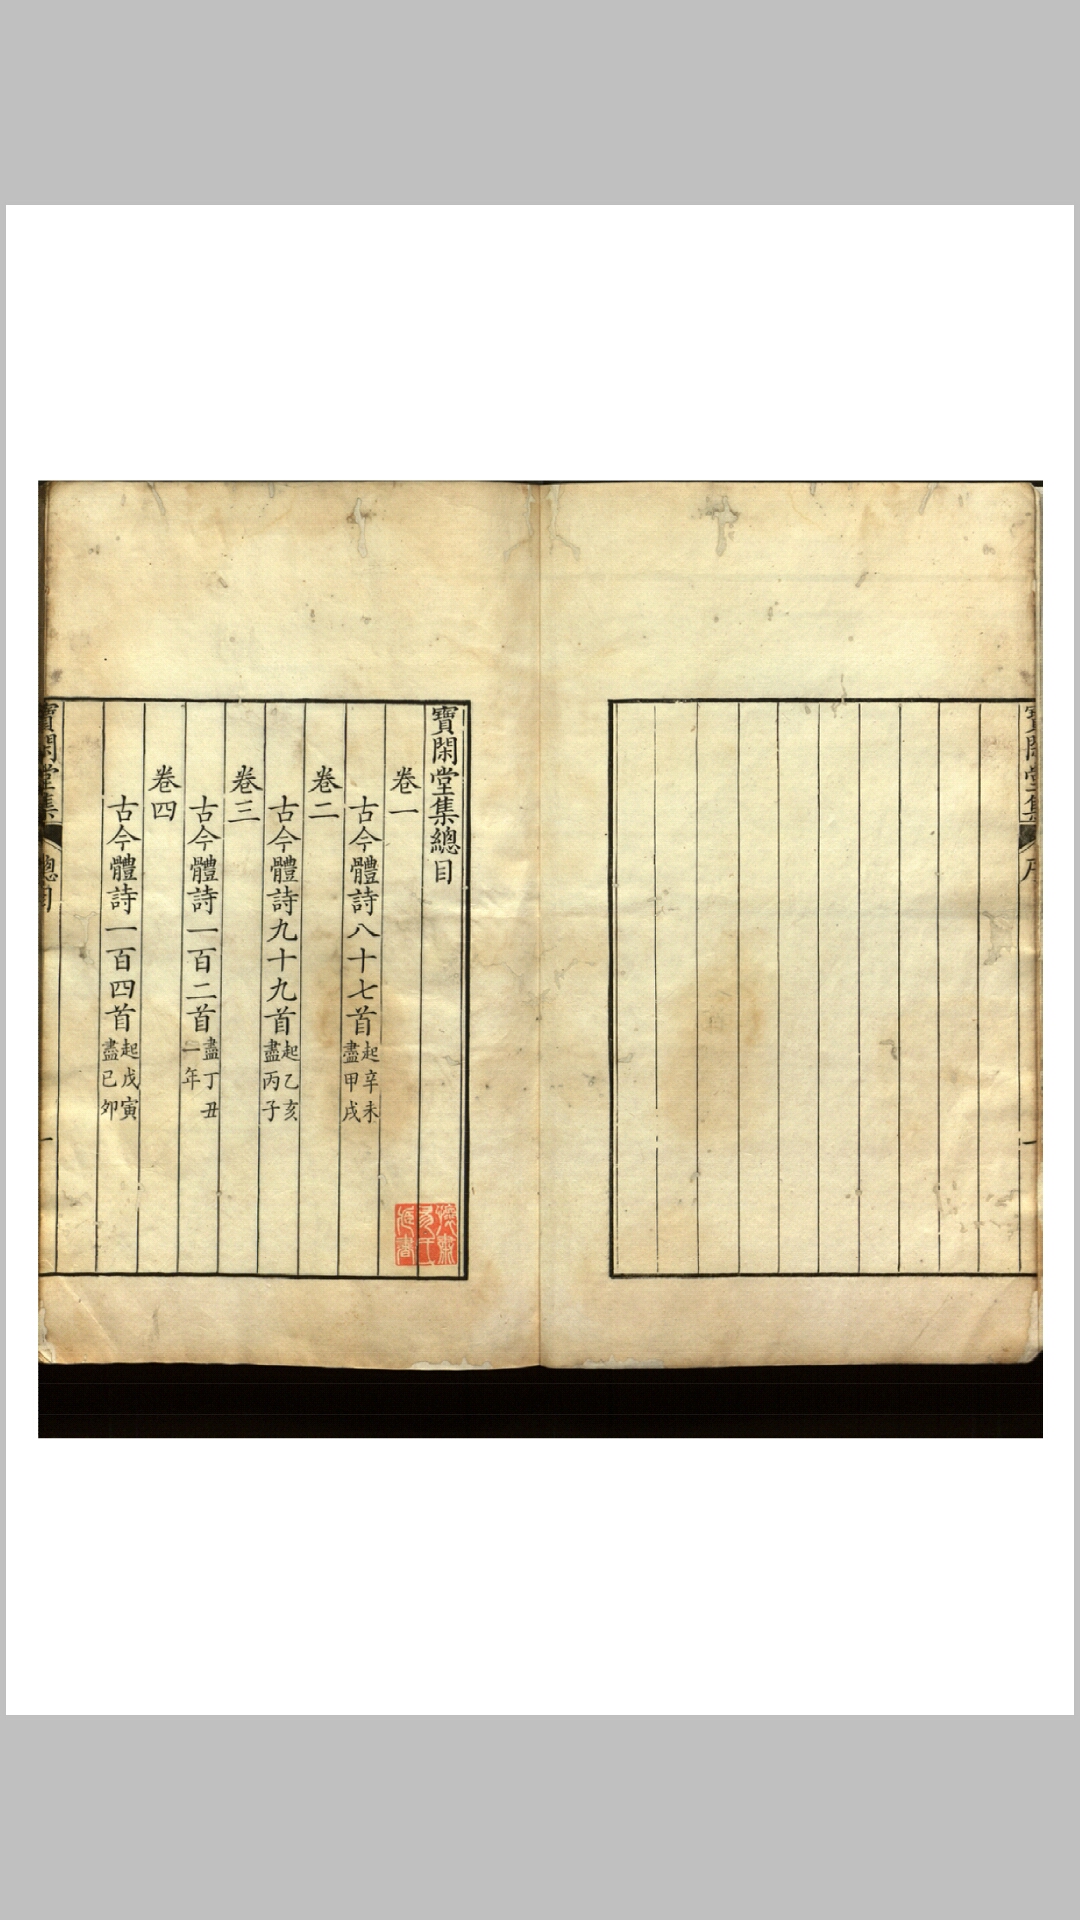 寶閑堂集
序
一
寶閑堂集總目
卷一
古今體詩八十七首起辛未
盡甲戌
卷二
古今體詩九十九首起乙亥
盡丙子
卷三
古今體詩一百二首盡丁丑
一年
卷四
古今體詩一百四首起戊寅
盡己卯
寶閑堂集
總目
一